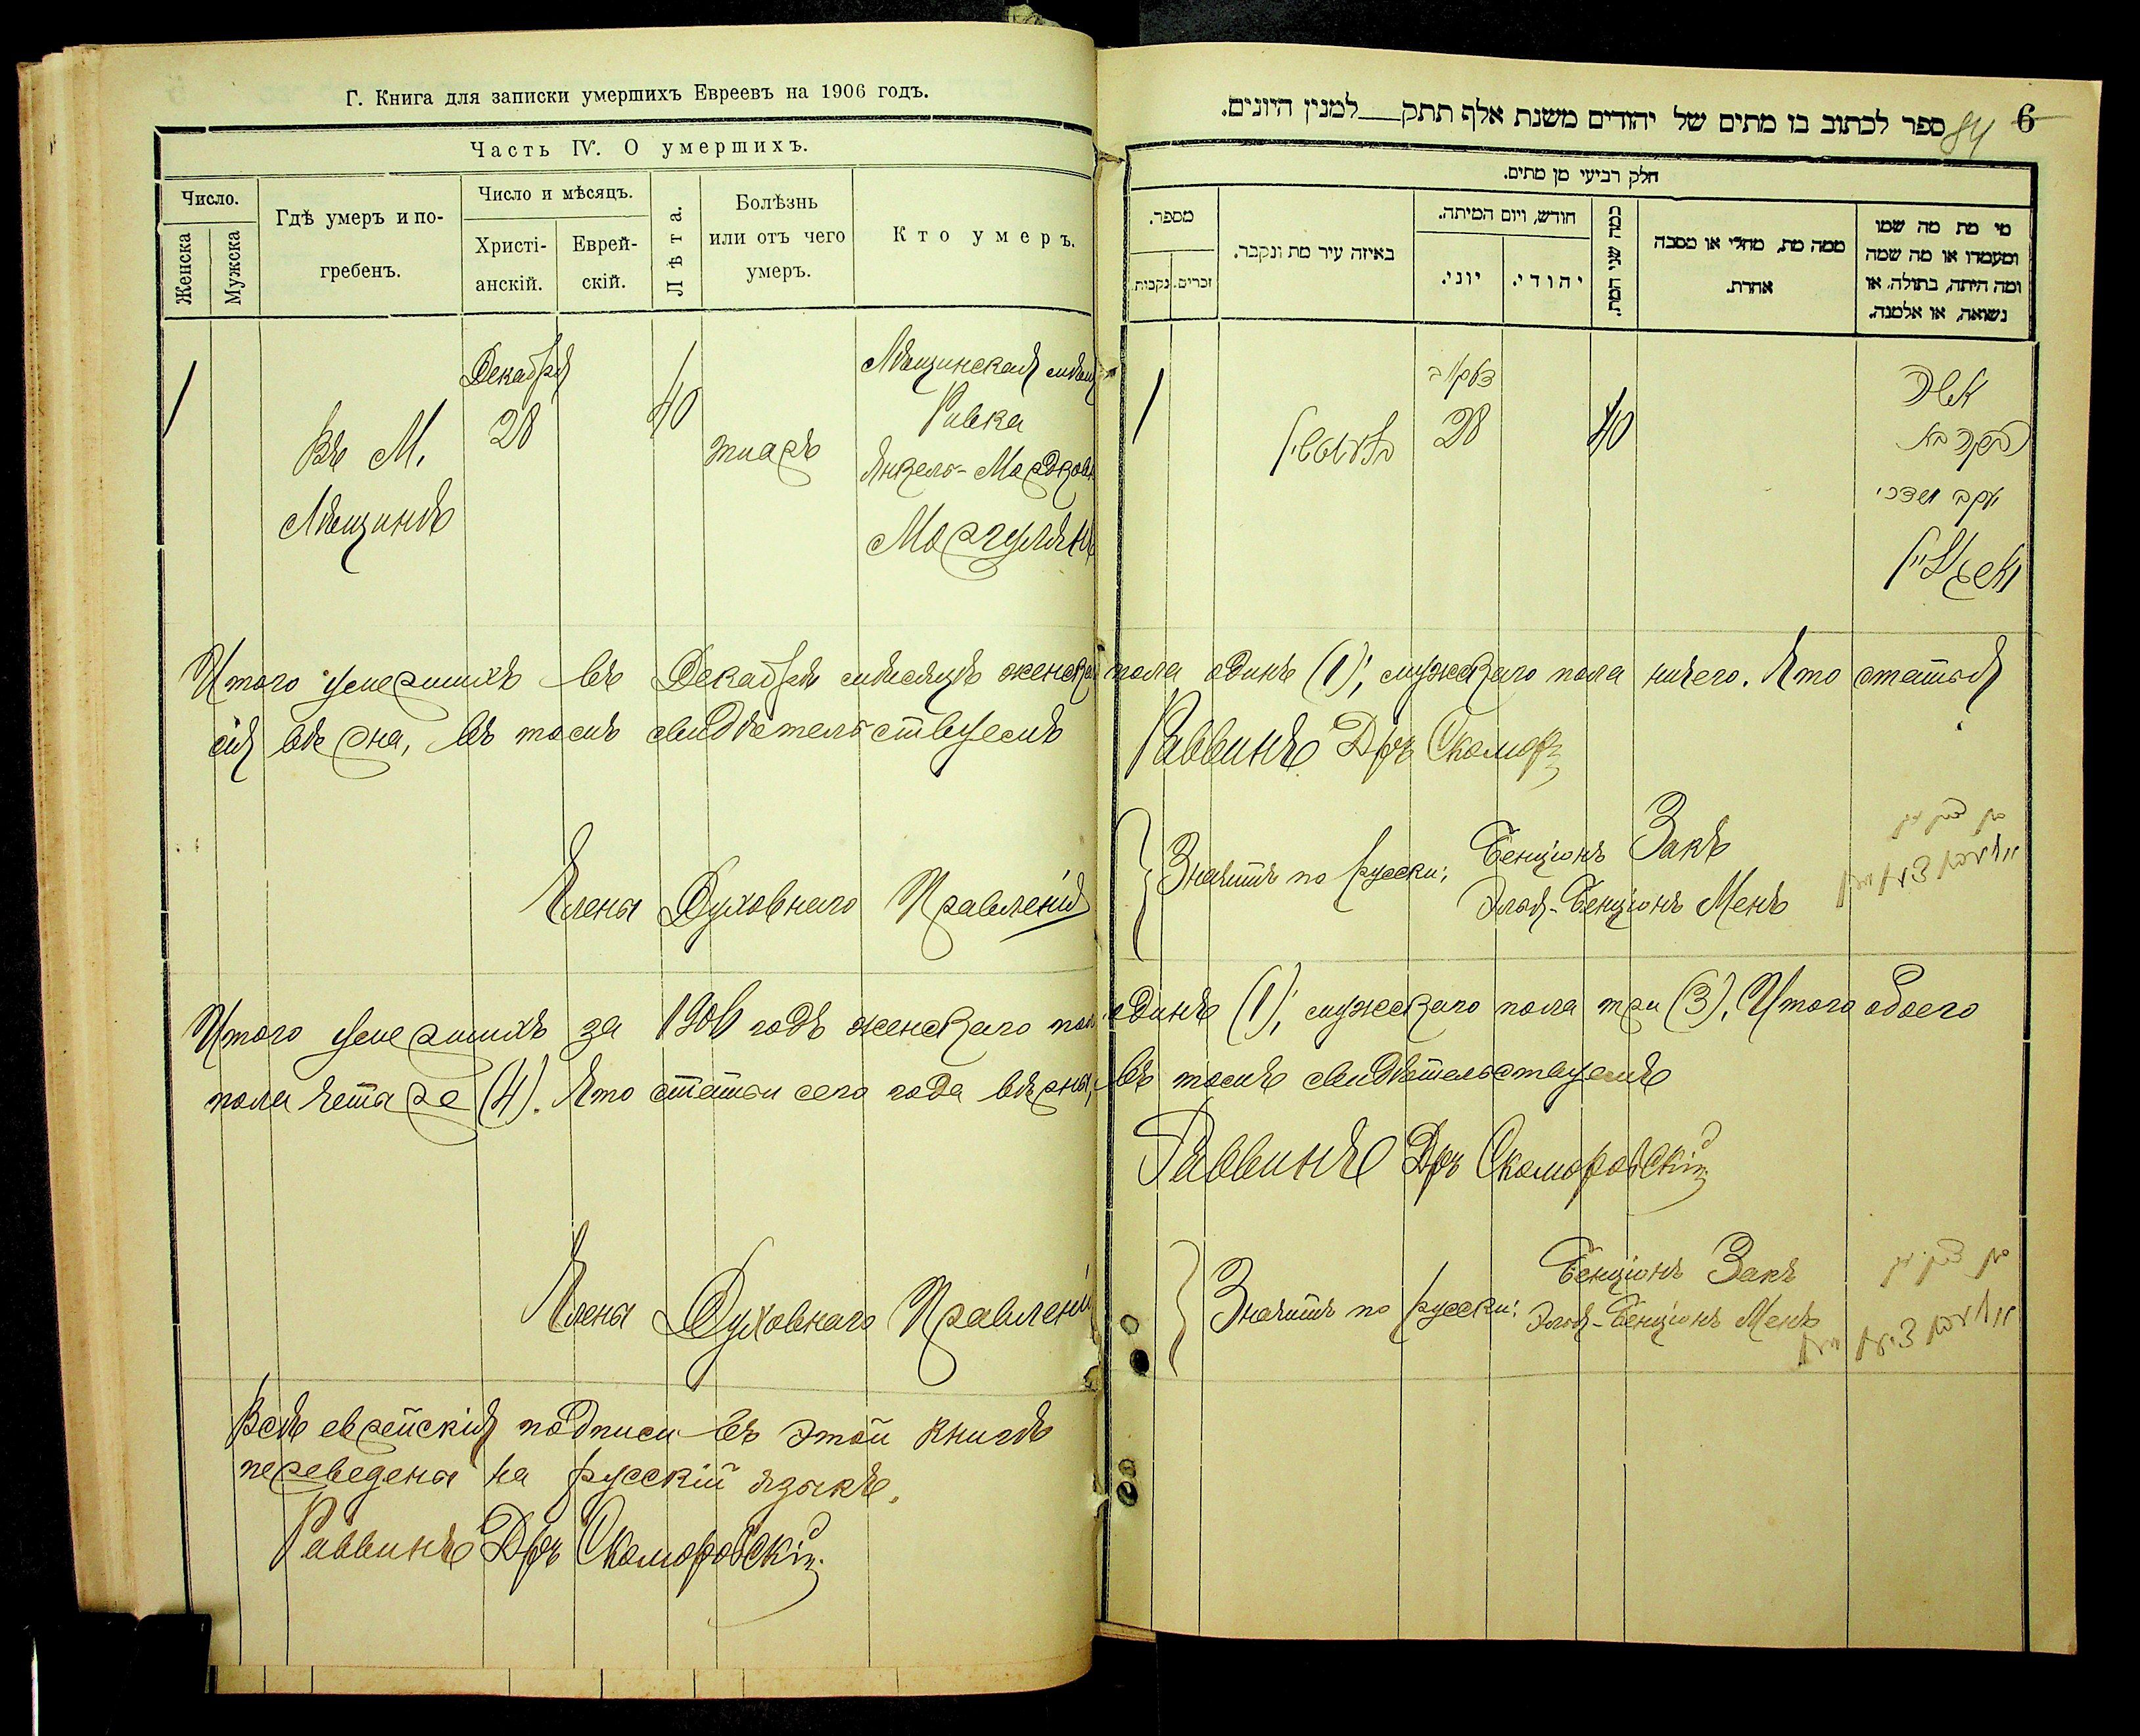 Г. Книга для записки умершихъ Евреевъ на 1906 годъ.
Часть IV. О умершихъ.
Число.
Женска
Мужска
Гдѣ умеръ и по-
гребенъ.
Число и мѣсяцъ.
Христі-
анскій.
Еврей-
скій.
Лѣта.
Болѣзнь
или отъ чего
умеръ.
Кто умеръ.
1
Въ М.
Лѣщинѣ
Декабря
28
40
тиаръ
Лѣщинская
Ривка
Янкель-Мордков
Маргулянъ
Итого умершихъ въ Декабрѣ мѣсяцѣ женска
сія вѣрна, въ томъ свидѣтельствуемъ
Члены Духовнаго Правленія
Итого умершихъ за 1906 годъ женскаго пол
пола четыре (4). Что статьи сего года вѣрны,
Члены Духовнаго Правлені
Всѣ еврейскія подписи въ этой книгѣ
переведены на русскій языкъ.
Раввинъ Дръ Скоморовскій
6
84
ספר לכתוב בו מתים של יהודים משנת אלף תתק למנין היונים.
חלק רביעי מן מתים.
מספר.
נקבות.
זכרים.
באיזה עיר מת ונקבר.
חודש, ויום המיתה.
יוני.
יהודי.
כמה שני המת.
ממה מת, מחלי או מסבה
אחרת.
מי מת מה שמו
ומעמדו או מה שמה
ומה היתה, בתולה, או
נשואה, או אלמנה.
1
28
40
אשה
רבקה בת
יעקב מרדכי
מארגוליין
пола одинъ (1); мужскаго пола ничего. Что статья
Раввинъ Дръ Скомор
Значитъ по русски:
Бенціонъ Закъ
Эльья-Бенціонъ Менъ
одинъ (1); мужскаго пола три (3). Итого обоего
въ томъ свидѣтельствуемъ
Раввинъ Дръ Скоморовскій
Значитъ по русски:
Бенціонъ Закъ
Эльья-Бенціонъ Менъ